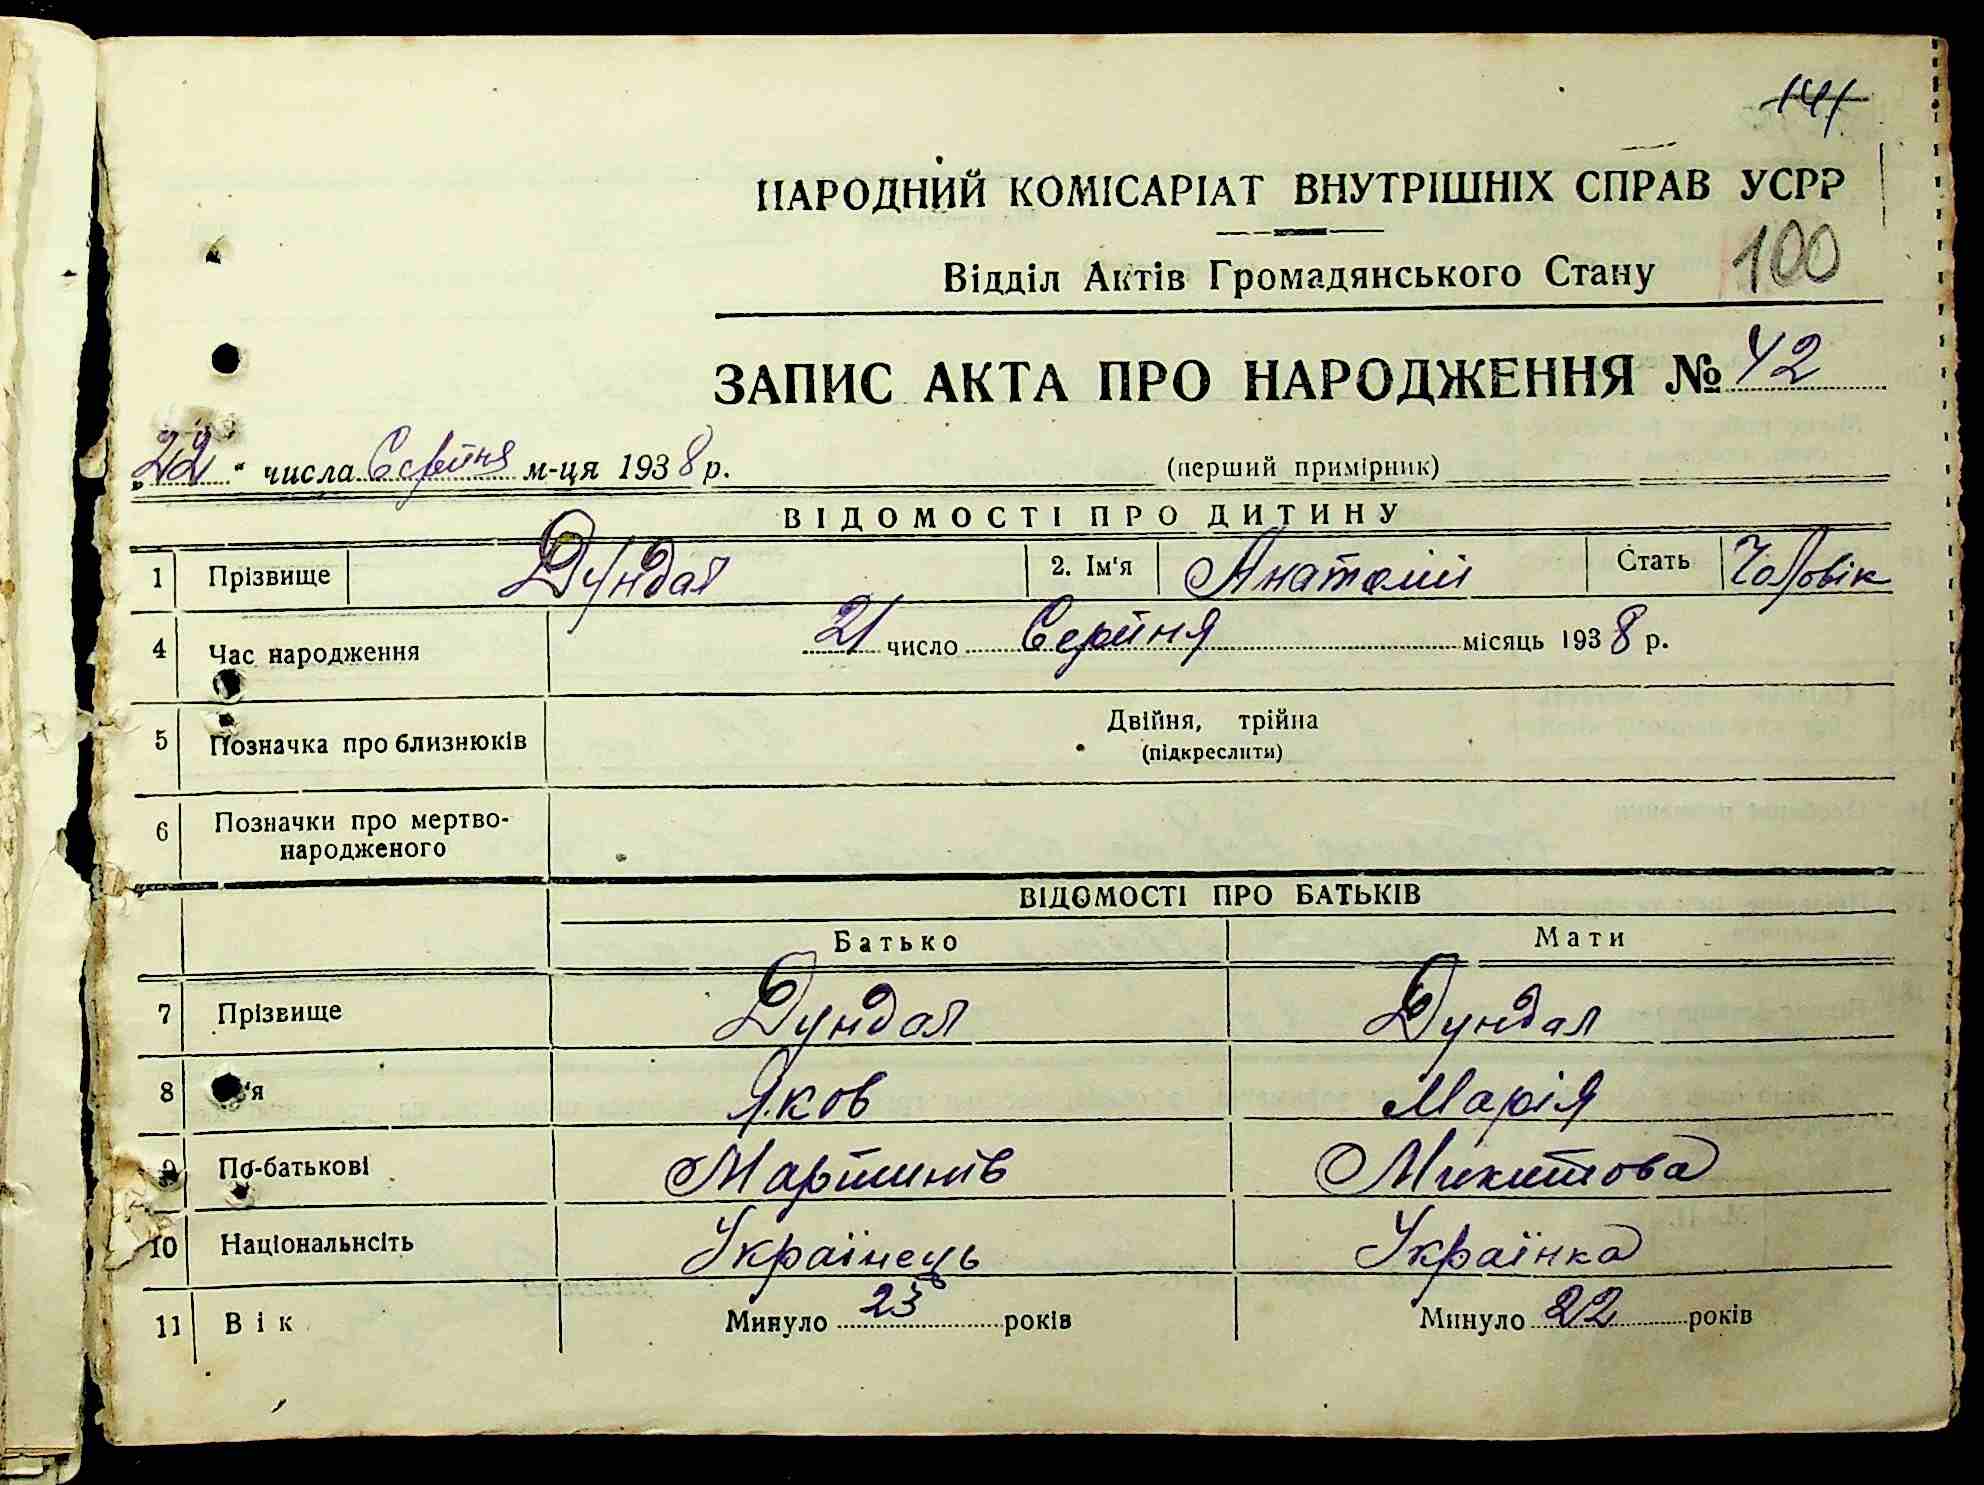 141
НАРОДНИЙ КОМІСАРІАТ ВНУТРІШНІХ СПРАВ УСРР
100
Відділ Актів Громадянського Стану
ЗАПИС АКТА ПРО НАРОДЖЕННЯ № 42
"22" числа Серпня м-ця 1938 р. (перший примірник)
ВІДОМОСТІ ПРО ДИТИНУ
1 Прізвище Дундал 2. Ім'я Анатолій Стать Чоловік
4 Час народження 21 число Серпня місяць 1938 р.
5 Позначка про близнюків Двійня, трійна
(підкреслити)
6 Позначки про мертво-
народженого
ВІДОМОСТІ ПРО БАТЬКІВ
Батько Мати
7 Прізвище Дундал Дундал
8 'я Яков Марія
9 По-батькові Мартинів Микитова
10 Національнсіть Українець Українка
11 Вік Минуло 23 років Минуло 22 років